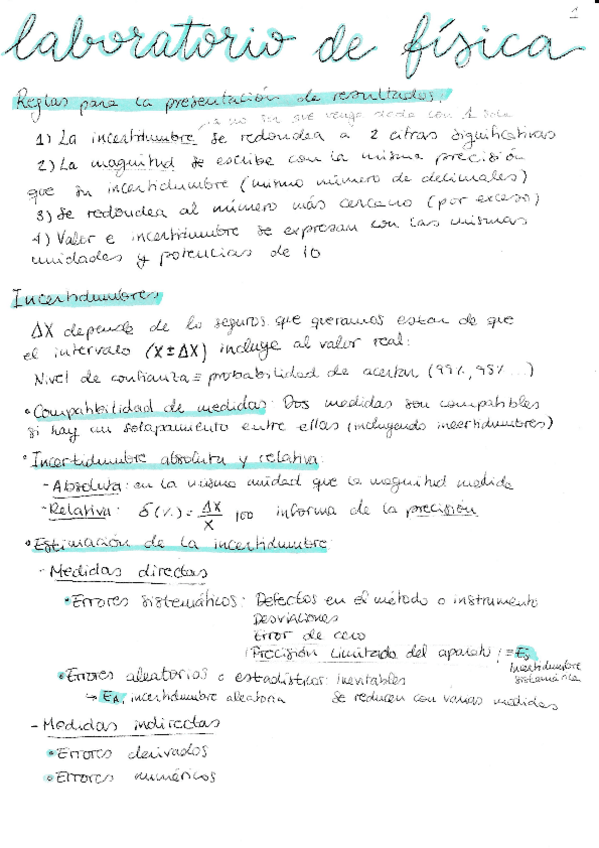 1
laboratorio de física
Reglas para la presentación de resultados:
a no ser que venga dada con 1 sola
1) La incertidumbre se redondea a 2 cifras significativas
2) La magnitud se escribe con la misma precisión
que su incertidumbre (mismo número de decimales)
3) Se redondea al número más cercano (por exceso)
4) Valor e incertidumbre se expresan con las mismas
unidades y potencias de 10
Incertidumbres
ΔX depende de lo seguros que queramos estar de que
el intervalo (X±ΔX) incluye al valor real:
Nivel de confianza ≡ probabilidad de acertar (99%, 95% ...)
• Compatibilidad de medidas: Dos medidas son compatibles
si hay un solapamiento entre ellas (incluyendo incertidumbres)
• Incertidumbre absoluta y relativa:
- Absoluta: en la misma unidad que la magnitud medida
- Relativa: δ(%) = ΔX/X 100 informa de la precisión
• Estimación de la incertidumbre:
- Medidas directas
• Errores sistemáticos: Defectos en el método o instrumento
Desviaciones
Error de cero
Precisión limitada del aparato ≡ Es
incertidumbre sistemática
• Errores aleatorios o estadísticos: inevitables
→ EA, incertidumbre aleatoria se reducen con varias medidas
- Medidas indirectas
• Errores derivados
• Errores numéricos